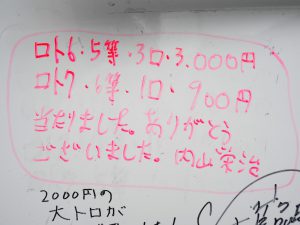 ロト6・5等・3口・3.000円
ロト7・6等・1口・900円
当たりました。ありがとう
ございました。内山栄治
2000円の
大トロが